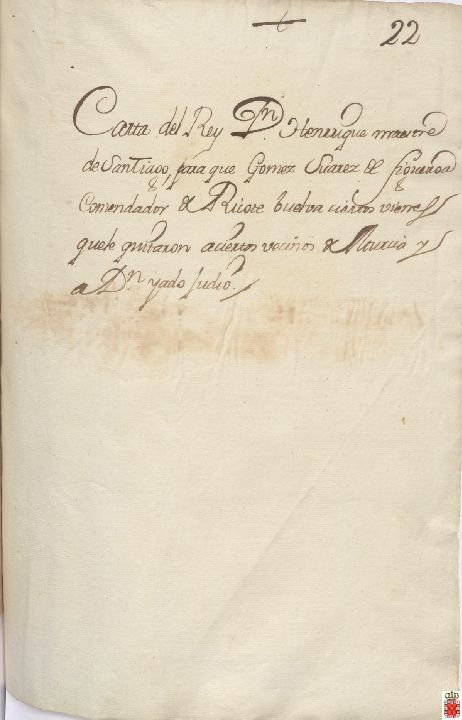 22
Carta del Rey Dn. Henrrique maestre
de Santiago, para que Gomez Suarez de figueroa
Comendador de Ricote buelva ciertos vienes
que le quitaron a ciertos vecinos de Murcia y
a Dn yado Judio.